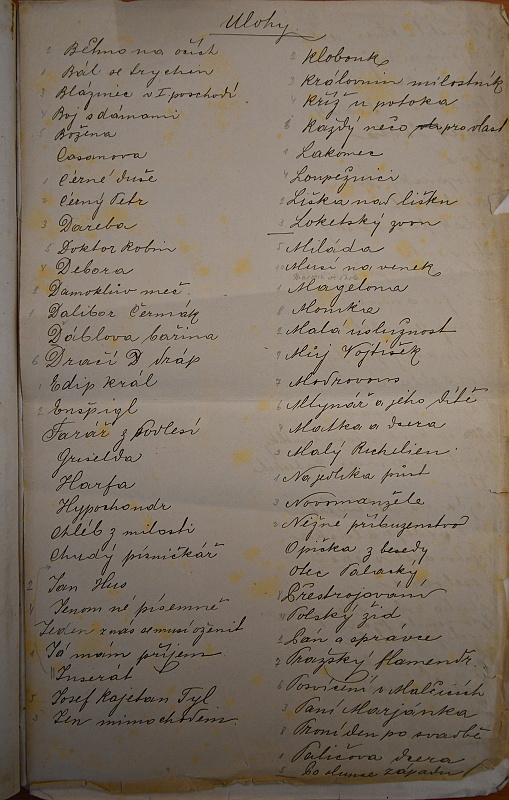 Úlohy.
2 Bělmo na očích
1 Bál se trychin
3 Blázinec v I poschodí
4 Boj s dámami
5 Božena
Casanova
1 Černé duše
2 Černý Petr
3 Dareba
5 Doktor Robin
4 Debora
2 Damoklův meč
1 Dalibor Čermák
Ďáblova bařina
6 Dračí D dráp
1 Edip král
2 Enšpigl
Farář z Podlesí
Griselda
Harfa
Hypochondr
Chléb z milosti
Chudý písničkář
2 Jan Hus
Jenom ne písemně
Jeden z nás se musí oženit
Já mám příjem
Inserát
5 Josef Kajetan Tyl
3 Jen mimochodem
2 Klobouk
3 Královnin milostník
Kříž u potoka
6 Každý něco pro vlast
1 Lakomec
4 Loupežníci
2 Liška nad lišku
3 Loketský zvon
5 Miláda
Musí na venek
1 Magelona
8 Monika
2 Malá úslužnost
9 Můj Vojtíšek
7 Modrovous
6 Mlynář a jeho dítě
4 Matka a dcera
3 Malý Richelieu
Na půst
3 Novomanžele
2 Nejné příbuzenstvo
Opička z besedy
Otec Palacký
Přestrojování
Polský žid
2 Pan a správce
7 Pražský flamendr.
6 Posvícení v
3 Paní Marjánka
8 První den po svatbě
1 Paličova dcera
5 Po slunce západu